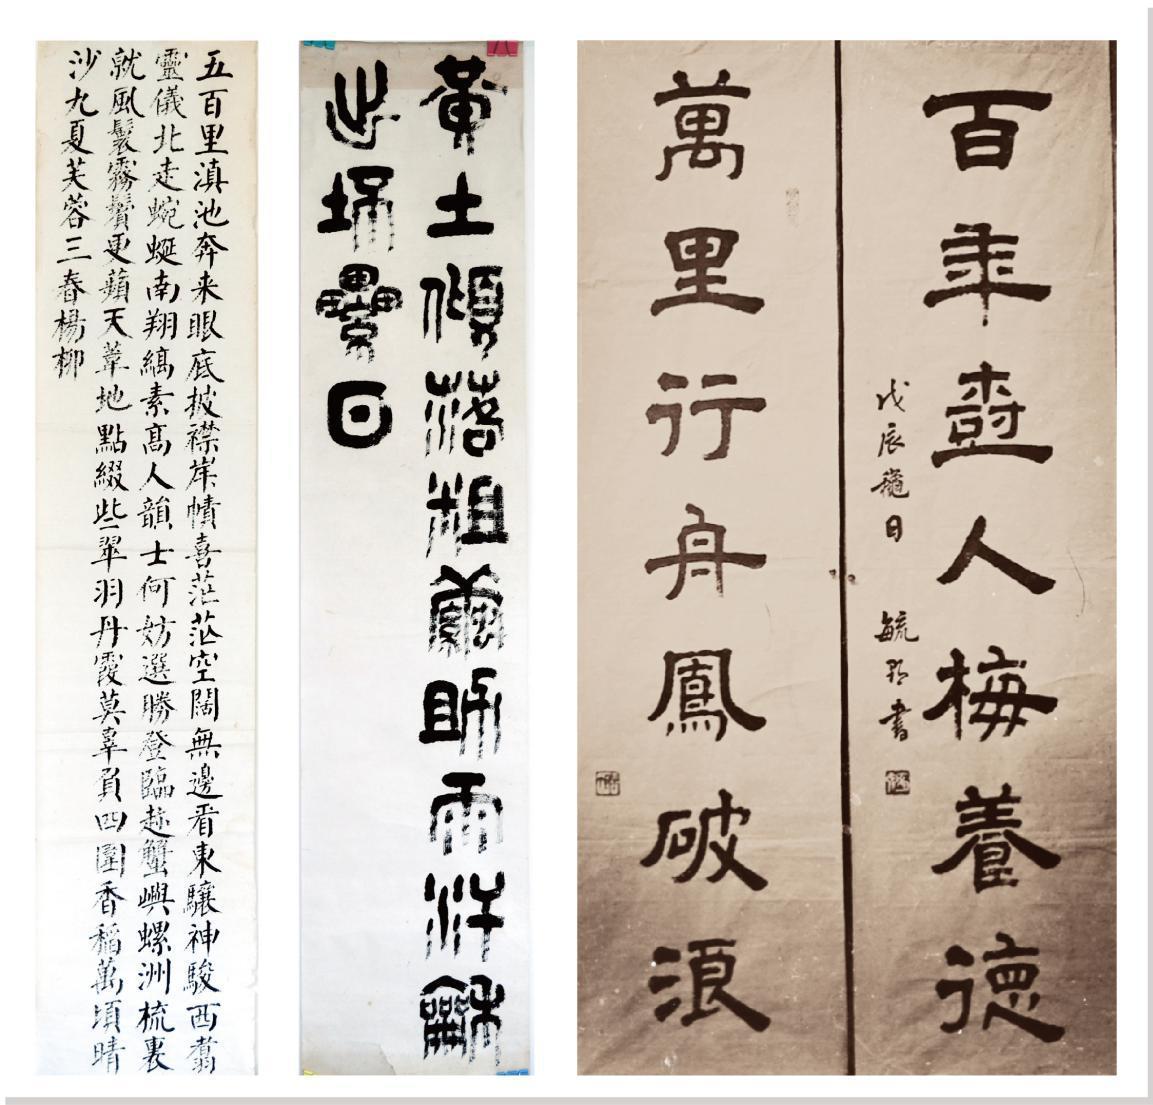 百年樹人梅養德
戊辰穐日 毓書
萬里行舟鳳破浪
黃土傾落粗繭而汗龢
日
五百里滇池奔来眼底披襟岸幘喜茫茫空闊無邊看東驤神駿西翥
靈儀北走蜿蜒南翔縞素高人韻士何妨選勝登臨趂蟹嶼螺洲梳裹
就風鬟霧鬢更蘋天葦地點綴些翠羽丹霞莫辜負四圍香稻萬頃晴
沙九夏芙蓉三春楊柳